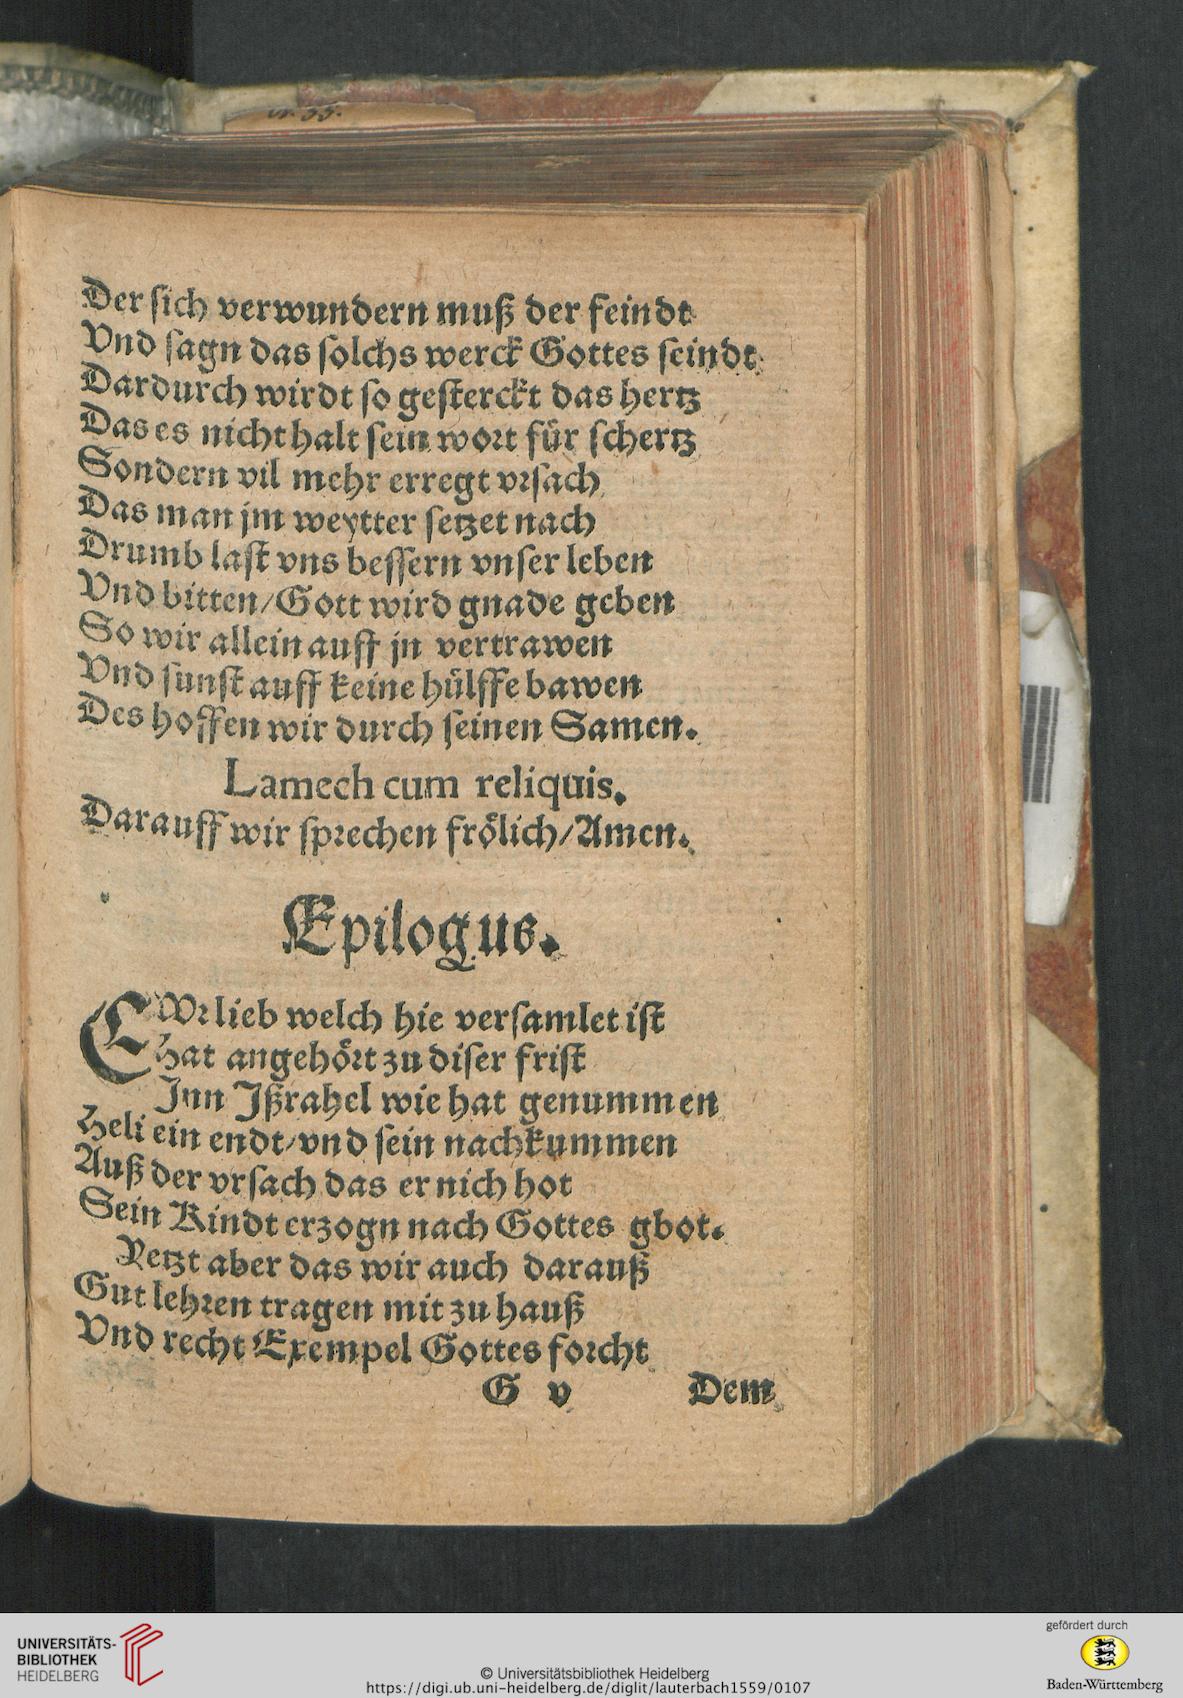 Der sich verwundern muß der feindt
Vnd sagn das solchs werck Gottes seindt
Dardurch wirdt so gesterckt das hertz
Das es nicht halt sein wort für schertz
Sondern vil mehr erregt vrsach
Das man jm weytter setzet nach
Drumb last vns bessern vnser leben
Vnd bitten/Gott wird gnade geben
So wir allein auff jn vertrawen
Vnd sunst auff keine hülffe bawen
Des hoffen wir durch seinen Samen.
Lamech cum reliquis.
Darauff wir sprechen frölich/Amen.
Epilogus.
EWr lieb welch hie versamlet ist
Hat angehört zu diser frist
Jnn Jßrahel wie hat genummen
Heli ein endt/vnd sein nachkummen
Auß der vrsach das er nich hot
Sein Kindt erzogn nach Gottes gbot.
Yetzt aber das wir auch darauß
Gut lehren tragen mit zu hauß
Vnd recht Exempel Gottes forcht
G v Dem
UNIVERSITÄTS-
BIBLIOTHEK
HEIDELBERG
© Universitätsbibliothek Heidelberg
https://digi.ub.uni-heidelberg.de/diglit/lauterbach1559/0107
gefördert durch
Baden-Württemberg